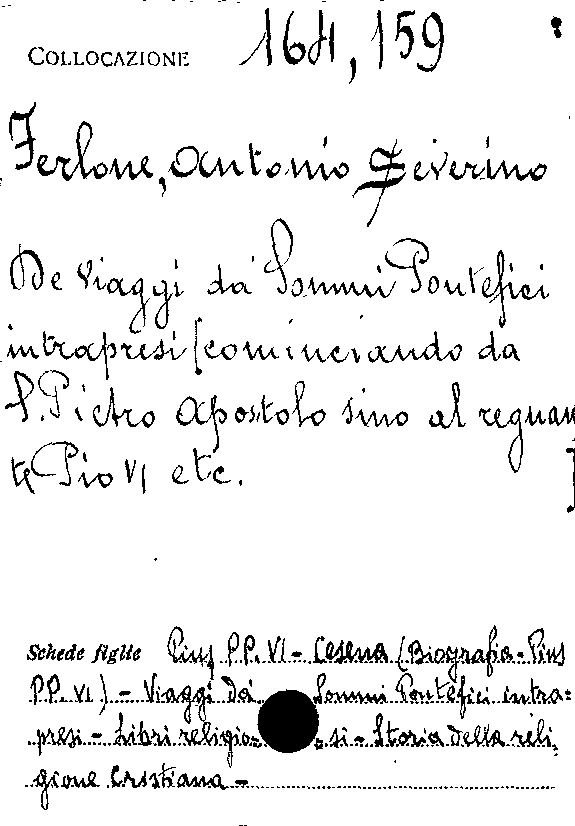 COLLOCAZIONE 164,159
Ferlone, Antonio Severino
De Viaggi da' Sommi Pontefici
intrapresi [cominciando da
S. Pietro Apostolo sino al regnan
te Pio VI etc. ]
Schede figlie Pius PP. VI - Cesena (Biografia - Pius
PP. VI) - Viaggi da' Sommi Pontefici intra=
presi - Libri religio= si - Storia della reli
gione Cristiana -